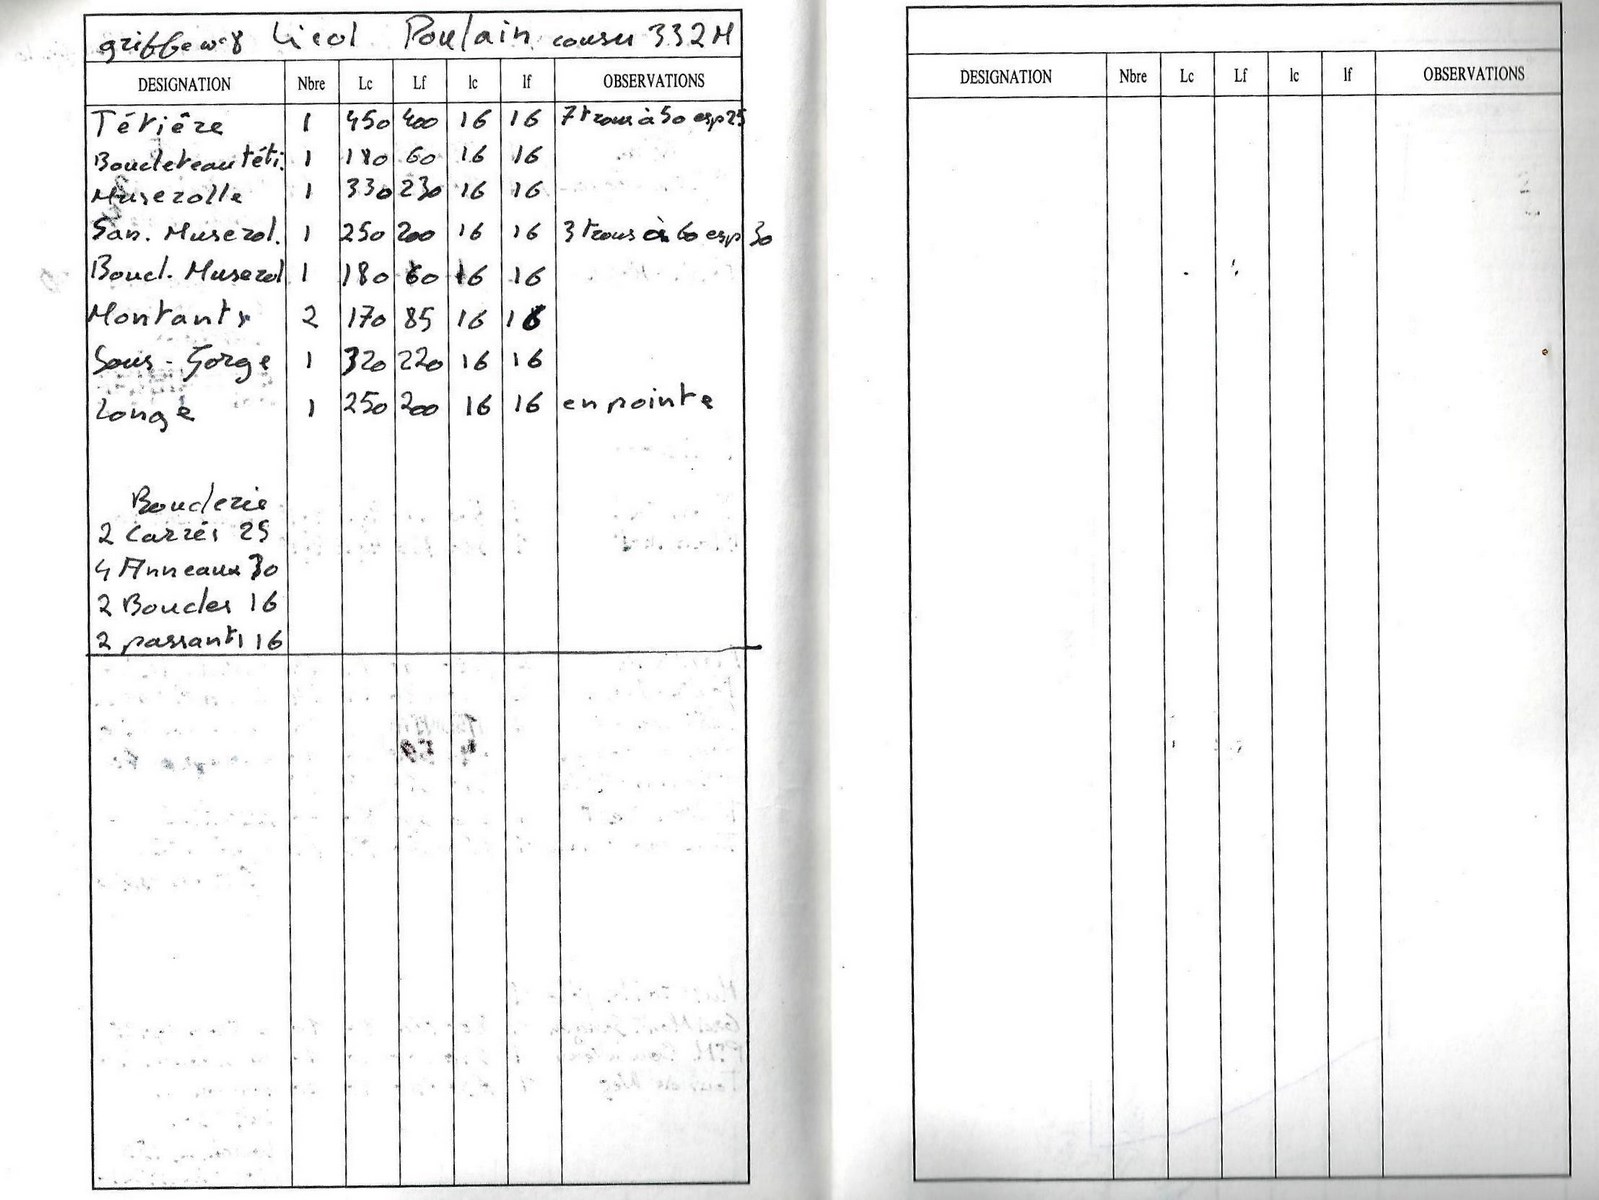 griffe n°8 Licol Poulain cousu 332M
DESIGNATION Nbre Lc Lf lc lf OBSERVATIONS
Tétière 1 450 400 16 16 7 trous à 50 esp 25
Boucleteau téti. 1 180 60 16 16
Muserolle 1 330 230 16 16
San. Muserol. 1 250 200 16 16 3 trous à 60 esp 30
Boucl. Muserol 1 180 60 16 16
Montants 2 170 85 16 16
Sous-Gorge 1 320 220 16 16
Longe 1 250 200 16 16 en pointe
Bouclerie
2 Carrés 25
4 Anneaux 30
2 Boucles 16
2 passants 16
DESIGNATION Nbre Lc Lf lc lf OBSERVATIONS